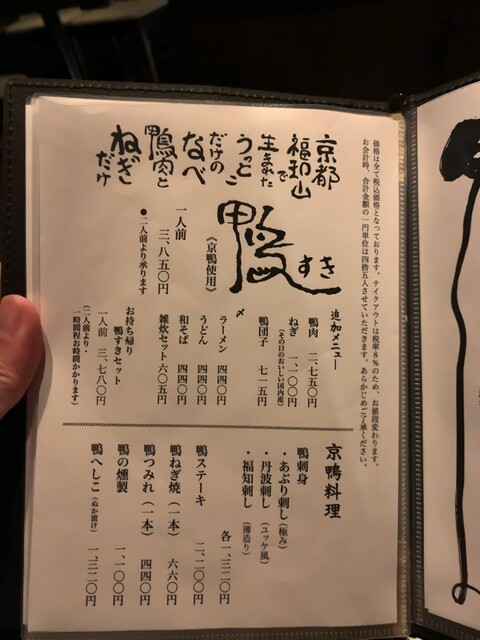 価格は全て税込価格となっております。テイクアウトは税率8%のため、お値段変わります。
お会計時、合計金額の一円単位は四捨五入させていただきます。あらかじめご了承ください。
京都
福知山
で
生まれた
うっとこ
だけの
なべ
鴨肉と
ねぎ
だけ
鴨すき
《京鴨使用》
一人前
三、八五〇円
●二人前より承ります
追加メニュー
鴨肉 二、七五〇円
ねぎ 一、一〇〇円
(その日のおいしい国内産)
鴨団子 七一五円
〆
ラーメン 四四〇円
うどん 四四〇円
和そば 四四〇円
雑炊セット 六〇五円
お持ち帰り
鴨すきセット
一人前 三、七八〇円
(二人前より・
一時間程お時間かかります)
京鴨料理
鴨刺身
・あぶり刺し(極み)
・丹波刺し(ユッケ風)
・福知刺し(薄造り)
各一、三二〇円
鴨ステーキ 二、二〇〇円
鴨ねぎ焼(一本) 六六〇円
鴨つみれ(一本) 四四〇円
鴨の燻製 一、一〇〇円
鴨へしこ(ぬか漬け) 一、三二〇円